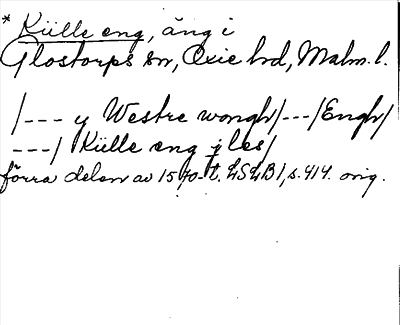 * Külle eng, äng i
Glostorps sn, Oxie hd, Malm. l.
/--- y Westre wongh/---/Engh/
---/ Külle eng j les/
förra delen av 1570-t. LSLB I, s. 414. orig.